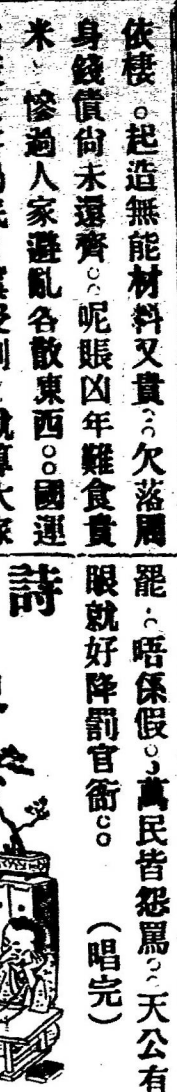 依棲。起造無能材料又貴。。欠落周
身錢債尚未還齊。。呢賬凶年難食貴
米。慘過人家避亂各散東西。。國運
罷。。唔係假。。萬民皆怨罵。。天公有
眼就好降罰官衙。。 (唱完)
詩